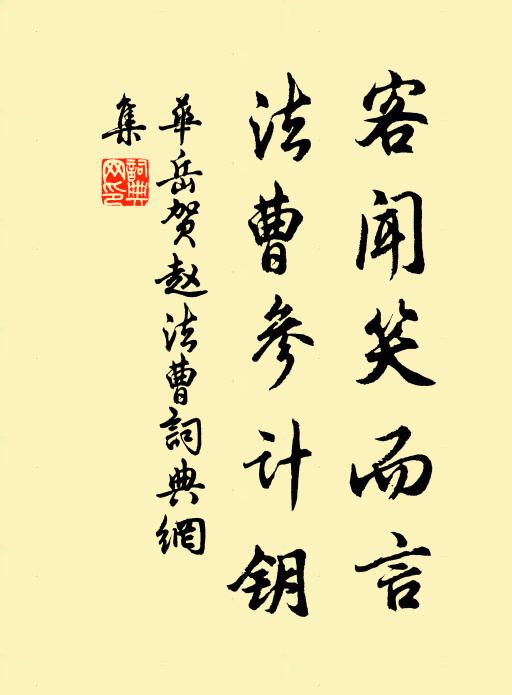 客闻笑而言
法曹参计钥
華岳贺赵法曹詞典網
集
詞典
网印